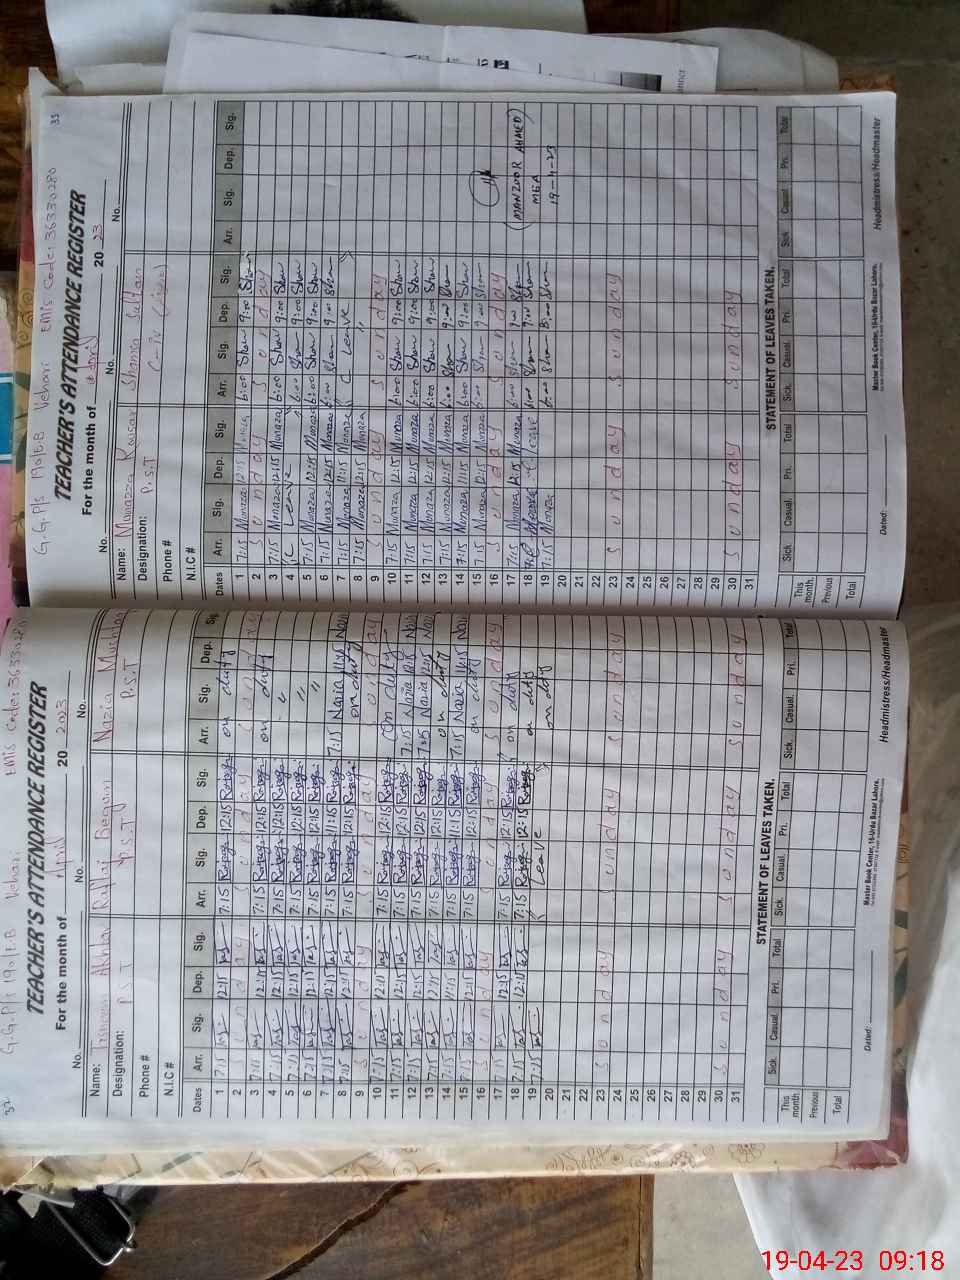 32
G.G.P/S 190/E.B Vehari EMIS Code: 36330280
TEACHER'S ATTENDANCE REGISTER
For the month of April 20 2023
No. No. No.
Name: Tasneem Akhtar Raffat Begam Nazia Mushtaq
Designation: P.S.T P.S.T P.S.T
Phone #
N.I.C #
Dates Arr. Sig. Dep. Sig. Arr. Sig. Dep. Sig. Arr. Sig. Dep. Sig.
1 7:15 Tas 12:15 Tas 7:15 12:15 on duty
2 Sunday Sunday Sunday
3 7:15 Tas 12:15 Tas 7:15 12:15 on duty
4 7:15 Tas 12:15 Tas 7:15 12:15 "
5 7:15 Tas 12:15 Tas 7:15 12:15 "
6 7:15 Tas 12:15 Tas 7:15 12:15 "
7 7:15 Tas 11:15 Tas 7:15 11:15 7:15 Nazia 11:15 Nazia
8 7:15 Tas 12:15 Tas 7:15 12:15 on duty
9 Sunday Sunday Sunday
10 7:15 Tas 12:15 Tas 7:15 12:15 on duty
11 7:15 Tas 12:15 Tas 7:15 12:15 7:15 Nazia 12:15 Nazia
12 7:15 Tas 12:15 Tas 7:15 12:15 7:15 Nazia 12:15 Nazia
13 7:15 Tas 12:15 Tas 7:15 12:15 on duty
14 7:15 Tas 11:15 Tas 7:15 11:15 7:15 Nazia 11:15 Nazia
15 7:15 Tas 12:15 Tas 7:15 12:15 on duty
16 Sunday Sunday Sunday
17 7:15 Tas 12:15 Tas 7:15 12:15 on duty
18 7:15 Tas 12:15 Tas 7:15 12:15 on duty
19 7:15 Tas Leave on duty
20
21
22
23 Sunday Sunday Sunday
24
25
26
27
28
29
30 Sunday Sunday Sunday
31
STATEMENT OF LEAVES TAKEN.
Sick Casual Pri. Total Sick. Casual. Pri. Total Sick. Casual Pri. Total
This month.
Previous
Total
Dated:
Master Book Center, 16-Urdu Bazar Lahore.
Headmistress/Headmaster
33
G.G.P/S 190/E.B Vehari EMIS Code: 36330280
TEACHER'S ATTENDANCE REGISTER
For the month of April 20 23
No. No. No.
Name: Munazza Kausar Shama Sultan
Designation: P.S.T C-IV
Phone #
N.I.C #
Dates Arr. Sig. Dep. Sig. Arr. Sig. Dep. Sig. Arr. Sig. Dep. Sig.
1 7:15 Munaza 12:15 Munaza 6:00 Sham 9:00 Sham
2 Sunday Sunday
3 7:15 Munaza 12:15 Munaza 6:00 Sham 9:00 Sham
4 C Leave 6:00 Sham 9:00 Sham
5 7:15 Munaza 12:15 Munaza 6:00 Sham 9:00 Sham
6 7:15 Munaza 12:15 Munaza 6:00 Sham 9:00 Sham
7 7:15 Munaza 11:15 Munaza C Leave "
8 7:15 Munaza 12:15 Munaza
9 Sunday Sunday
10 7:15 Munaza 12:15 Munaza 6:00 Sham 9:00 Sham
11 7:15 Munaza 12:15 Munaza 6:00 Sham 9:00 Sham
12 7:15 Munaza 12:15 Munaza 6:00 Sham 9:00 Sham
13 7:15 Munaza 12:15 Munaza 6:00 Sham 9:00 Sham
14 7:15 Munaza 11:15 Munaza 6:00 Sham 9:00 Sham
15 7:15 Munaza 12:15 Munaza 6:00 Sham 9:00 Sham
16 Sunday Sunday
17 7:15 Munaza 12:15 Munaza 6:00 Sham 9:00 Sham
18 Leave Sham 9:00 Sham
19 7:15 Munaza 6:00 Sham 8:00 Sham
20
21
22
23 Sunday Sunday
24
25
26
27
28
29
30 Sunday Sunday
31
(MANZOOR AHMED)
MEA
19-4-23
STATEMENT OF LEAVES TAKEN.
Sick Casual. Pri. Total Sick. Casual. Pri. Total Sick Casual Pri. Tote
This month.
Previous
Total
Dated:
Master Book Center, 16-Urdu Bazar Lahore.
Headmistress/Headmaster
19-04-23 09:18